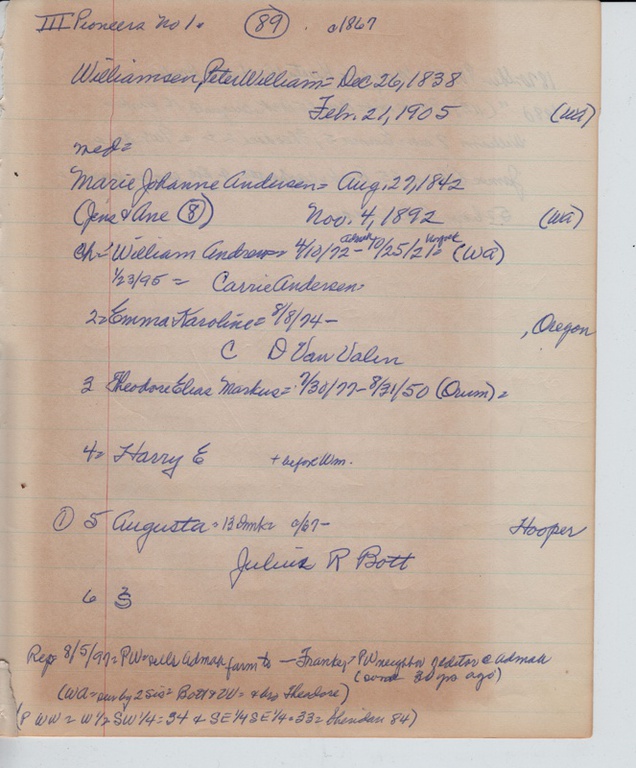 III Pioneers No 1. (89) c1867
Williamsen, Peter William = Dec. 26, 1838
Feb. 21, 1905 (Wa)
med =
Marie Johanne Andersen = Aug. 27, 1842
(Jens & Ane (8)) Nov. 4, 1892 (Wa)
ch = 1 William Andrew = 4/10/72 - 10/25/21 = (Wa)
1/23/95 = Carrie Andersen =
2 = Emma Karoline = 8/8/74 - , Oregon
C D Van Valen
3 Theodore Elias Markus = 7/30/77 - 8/31/50 (Orum) =
4 = Harry E + before Wm.
(1) 5 Augusta = B Dmk = c/67 - Hooper
Julius R Bott
6 3
Rep 8/5/97 = PW = sells Admah farm to - Frantz = PW neighbor editor @ Admah
(some 30 yrs ago)
(Wa = sur by 2 sis = Bott & VV = & bro Theodore)
(P WW = W 1/2 SW 1/4 = 34 & SE 1/4 SE 1/4 = 33 = Sheridan 84)